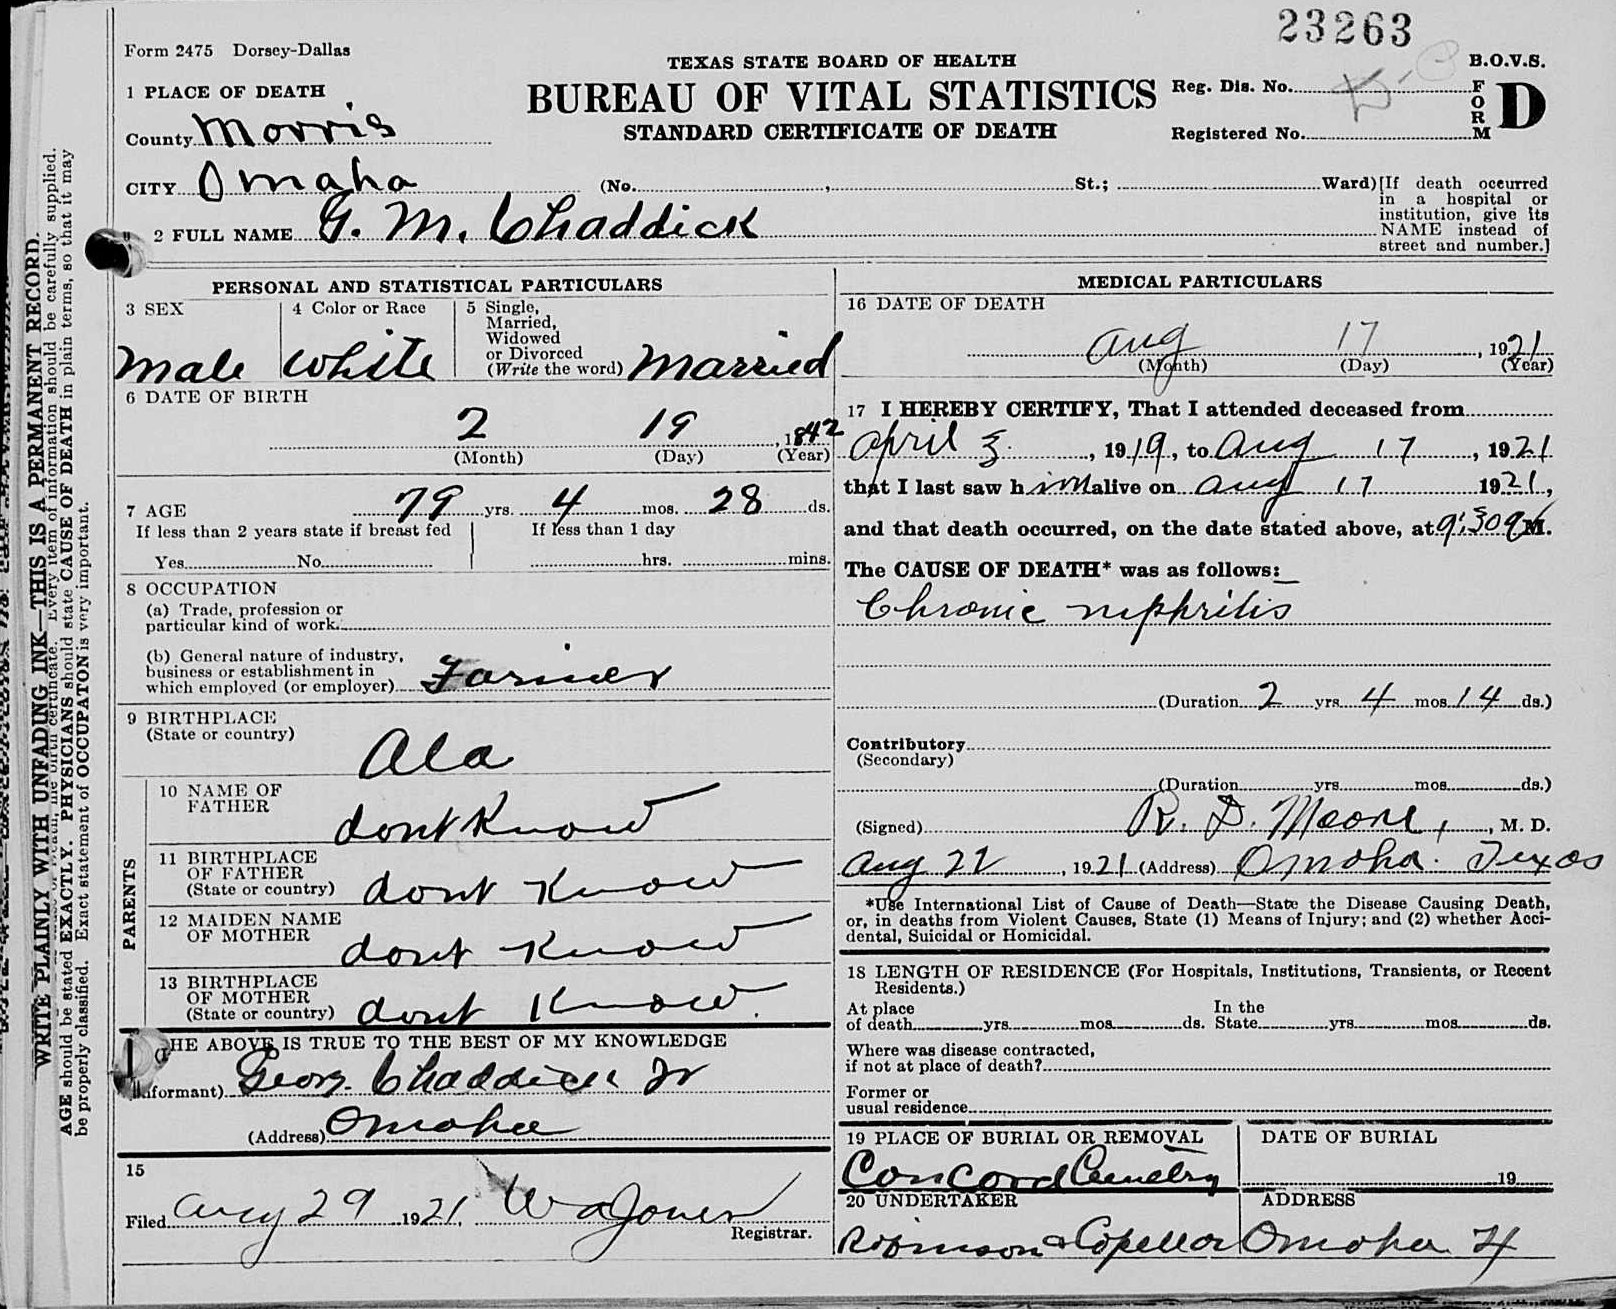 23263
Form 2475 Dorsey-Dallas
TEXAS STATE BOARD OF HEALTH
B.O.V.S.
1 PLACE OF DEATH
BUREAU OF VITAL STATISTICS
Reg. Dis. No.
FORM D
County Morris
STANDARD CERTIFICATE OF DEATH
Registered No.
CITY Omaha (No. , St.; Ward)
[If death occurred
in a hospital or
institution, give its
NAME instead of
street and number.]
2 FULL NAME G. M. Chaddick
PERSONAL AND STATISTICAL PARTICULARS
3 SEX
Male
4 Color or Race
White
5 Single,
Married,
Widowed
or Divorced
(Write the word) Married
6 DATE OF BIRTH
2 19 , 1842
(Month) (Day) (Year)
7 AGE 79 yrs. 4 mos. 28 ds.
If less than 2 years state if breast fed
Yes No
If less than 1 day
hrs. mins.
8 OCCUPATION
(a) Trade, profession or
particular kind of work
(b) General nature of industry,
business or establishment in
which employed (or employer) Farmer
9 BIRTHPLACE
(State or country)
Ala
PARENTS
10 NAME OF
FATHER
dont Know
11 BIRTHPLACE
OF FATHER
(State or country) dont Know
12 MAIDEN NAME
OF MOTHER
dont Know
13 BIRTHPLACE
OF MOTHER
(State or country) dont Know.
THE ABOVE IS TRUE TO THE BEST OF MY KNOWLEDGE
(Informant) Geo. Chaddick Jr
(Address) Omaha
15
Filed Aug 29 1921,
Registrar.
MEDICAL PARTICULARS
16 DATE OF DEATH
Aug 17 , 1921
(Month) (Day) (Year)
17 I HEREBY CERTIFY, That I attended deceased from
April 3 , 1919, to Aug 17 , 1921
that I last saw him alive on Aug 17 1921,
and that death occurred, on the date stated above, at 9:30 M.
The CAUSE OF DEATH* was as follows:
Chronic nephritis
(Duration 2 yrs 4 mos 14 ds.)
Contributory
(Secondary)
(Duration yrs mos ds.)
(Signed) R. D. Moore, , M. D.
Aug 22 , 1921 (Address) Omaha. Texas
*Use International List of Cause of Death—State the Disease Causing Death,
or, in deaths from Violent Causes, State (1) Means of Injury; and (2) whether Acci-
dental, Suicidal or Homicidal.
18 LENGTH OF RESIDENCE (For Hospitals, Institutions, Transients, or Recent
Residents.)
At place
of death yrs mos ds.
In the
State yrs mos ds.
Where was disease contracted,
if not at place of death?
Former or
usual residence
19 PLACE OF BURIAL OR REMOVAL
Concord Cemetry
DATE OF BURIAL
19
20 UNDERTAKER
Robinson &
ADDRESS
Omaha
WRITE PLAINLY WITH UNFADING INK—THIS IS A PERMANENT RECORD.
Every item of information should be carefully supplied.
AGE should be stated EXACTLY. PHYSICIANS should state CAUSE OF DEATH in plain terms, so that it may
be properly classified. Exact statement of OCCUPATON is very important.